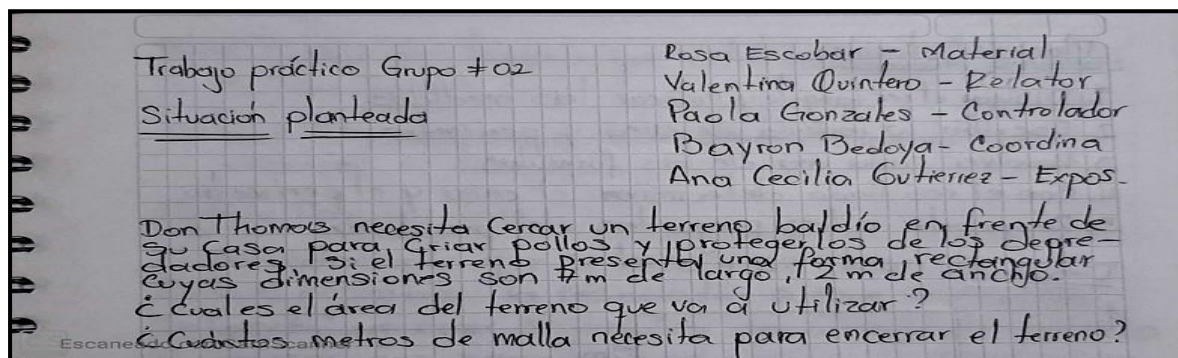 Trabajo práctico Grupo #02
Situación planteada
Rosa Escobar - Material
Valentina Quintero - Relator
Paola Gonzales - Controlador
Bayron Bedoya - Coordina
Ana Cecilia Gutierrez - Expos.
Don Thomas necesita Cercar un terreno baldío en frente de
su casa para criar pollos y protegerlos de los depre-
dadores. Si el terreno presenta una forma rectangular
cuyas dimensiones son m de largo, 12 m de ancho.
¿Cual es el área del terreno que va a utilizar?
¿Cuántos metros de malla necesita para encerrar el terreno?